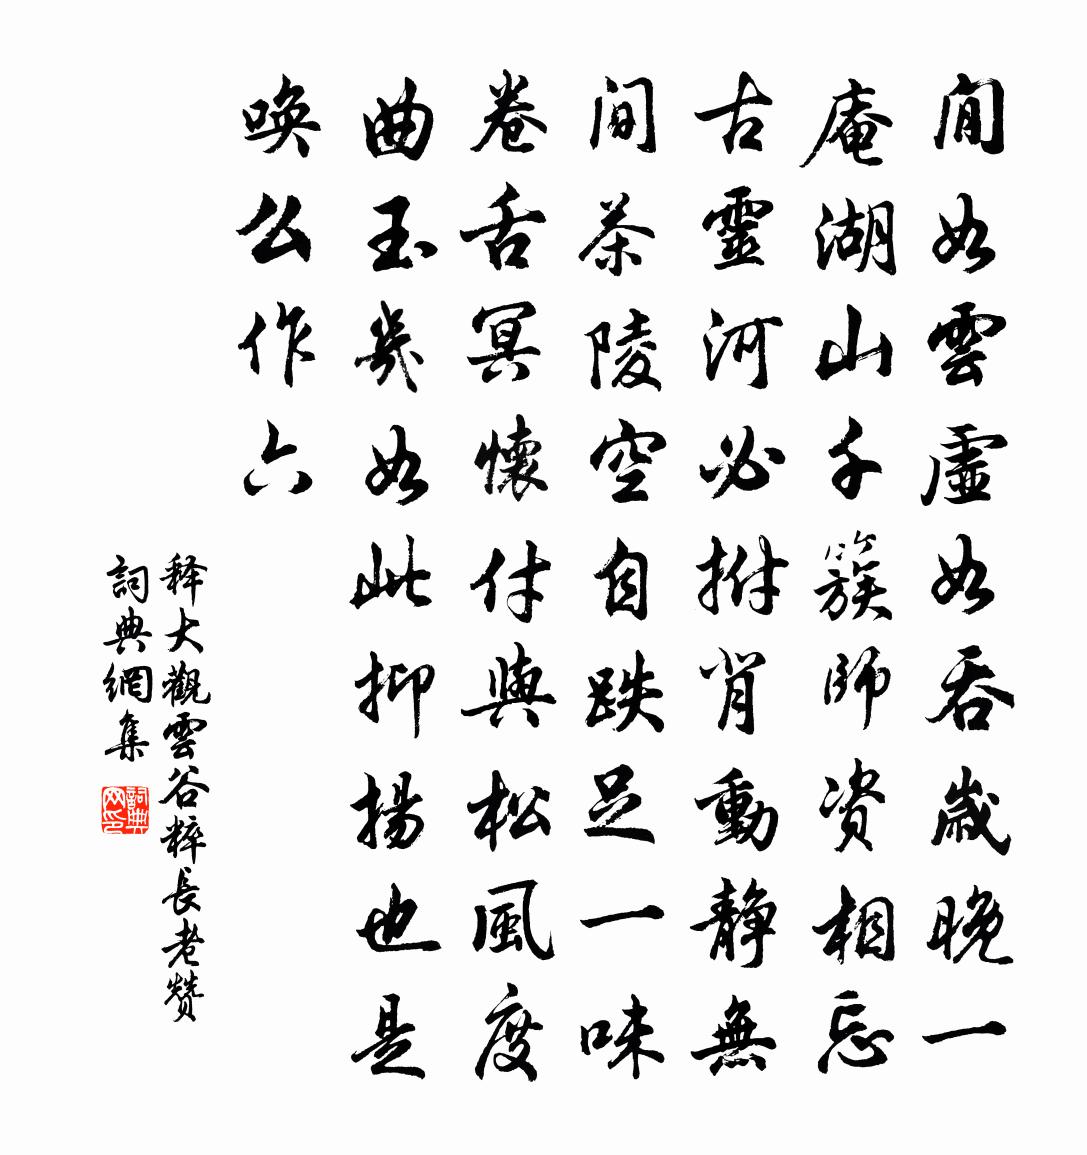 閒如雲虛如吞歲晚一
庵湖山千簇師資相忘
古靈河必拊背動靜無
間茶陵空自跌足一味
卷舌冥懷付與松風度
曲玉幾如此抑揚也是
喚么作六
釋大觀雲谷粹長老贊
詞典網集
詞典
网印